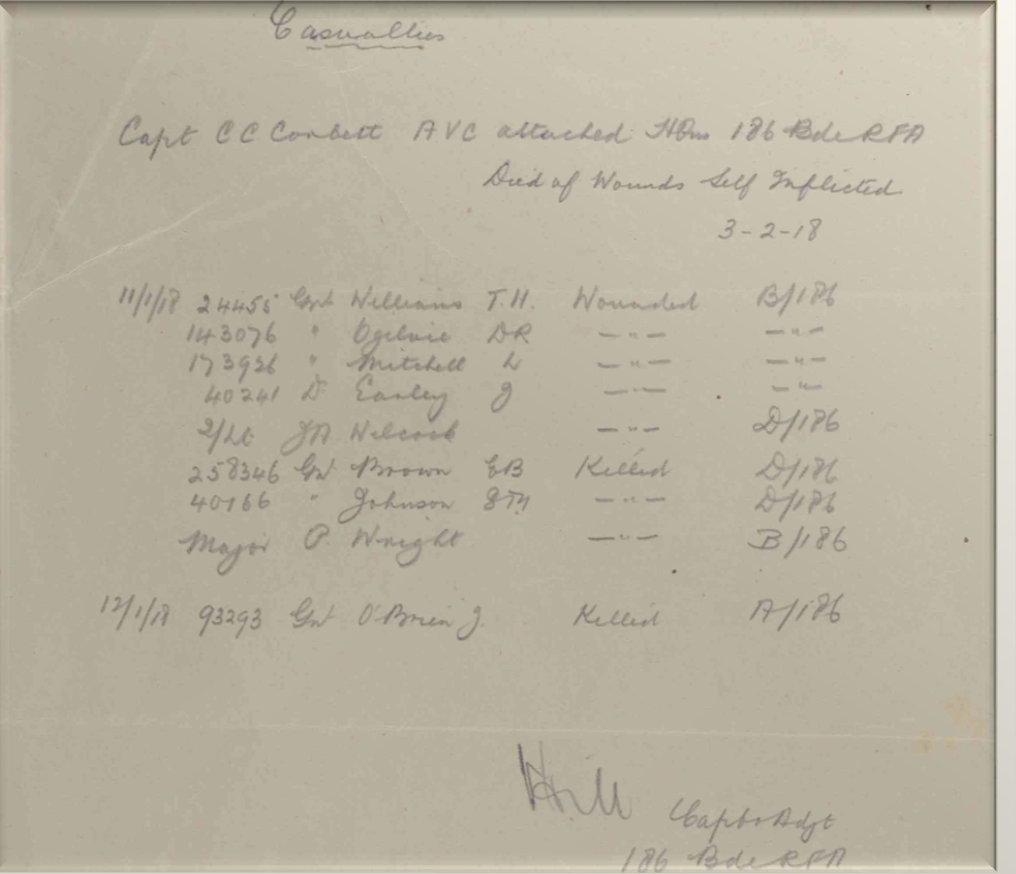 Casualties
Capt C C Corbett AVC attached HQrs 186 Bde RFA
Died of Wounds Self Inflicted
3-2-18
11/1/18 24455 Gnr Williams T.H. Wounded B/186
143076 " Ogilvie DR —"— —"—
173926 " Mitchell L —"— —"—
40241 Dr Earley J —"— —"—
2/Lt JA Wilcock —"— D/186
258346 Gnr Brown EB Killed D/186
40166 " Johnson —"— D/186
Major P Wright —"— B/186
12/1/18 93293 Gnr O'Brien J. Killed A/186
Hill
Capt & Adjt
186 Bde RFA